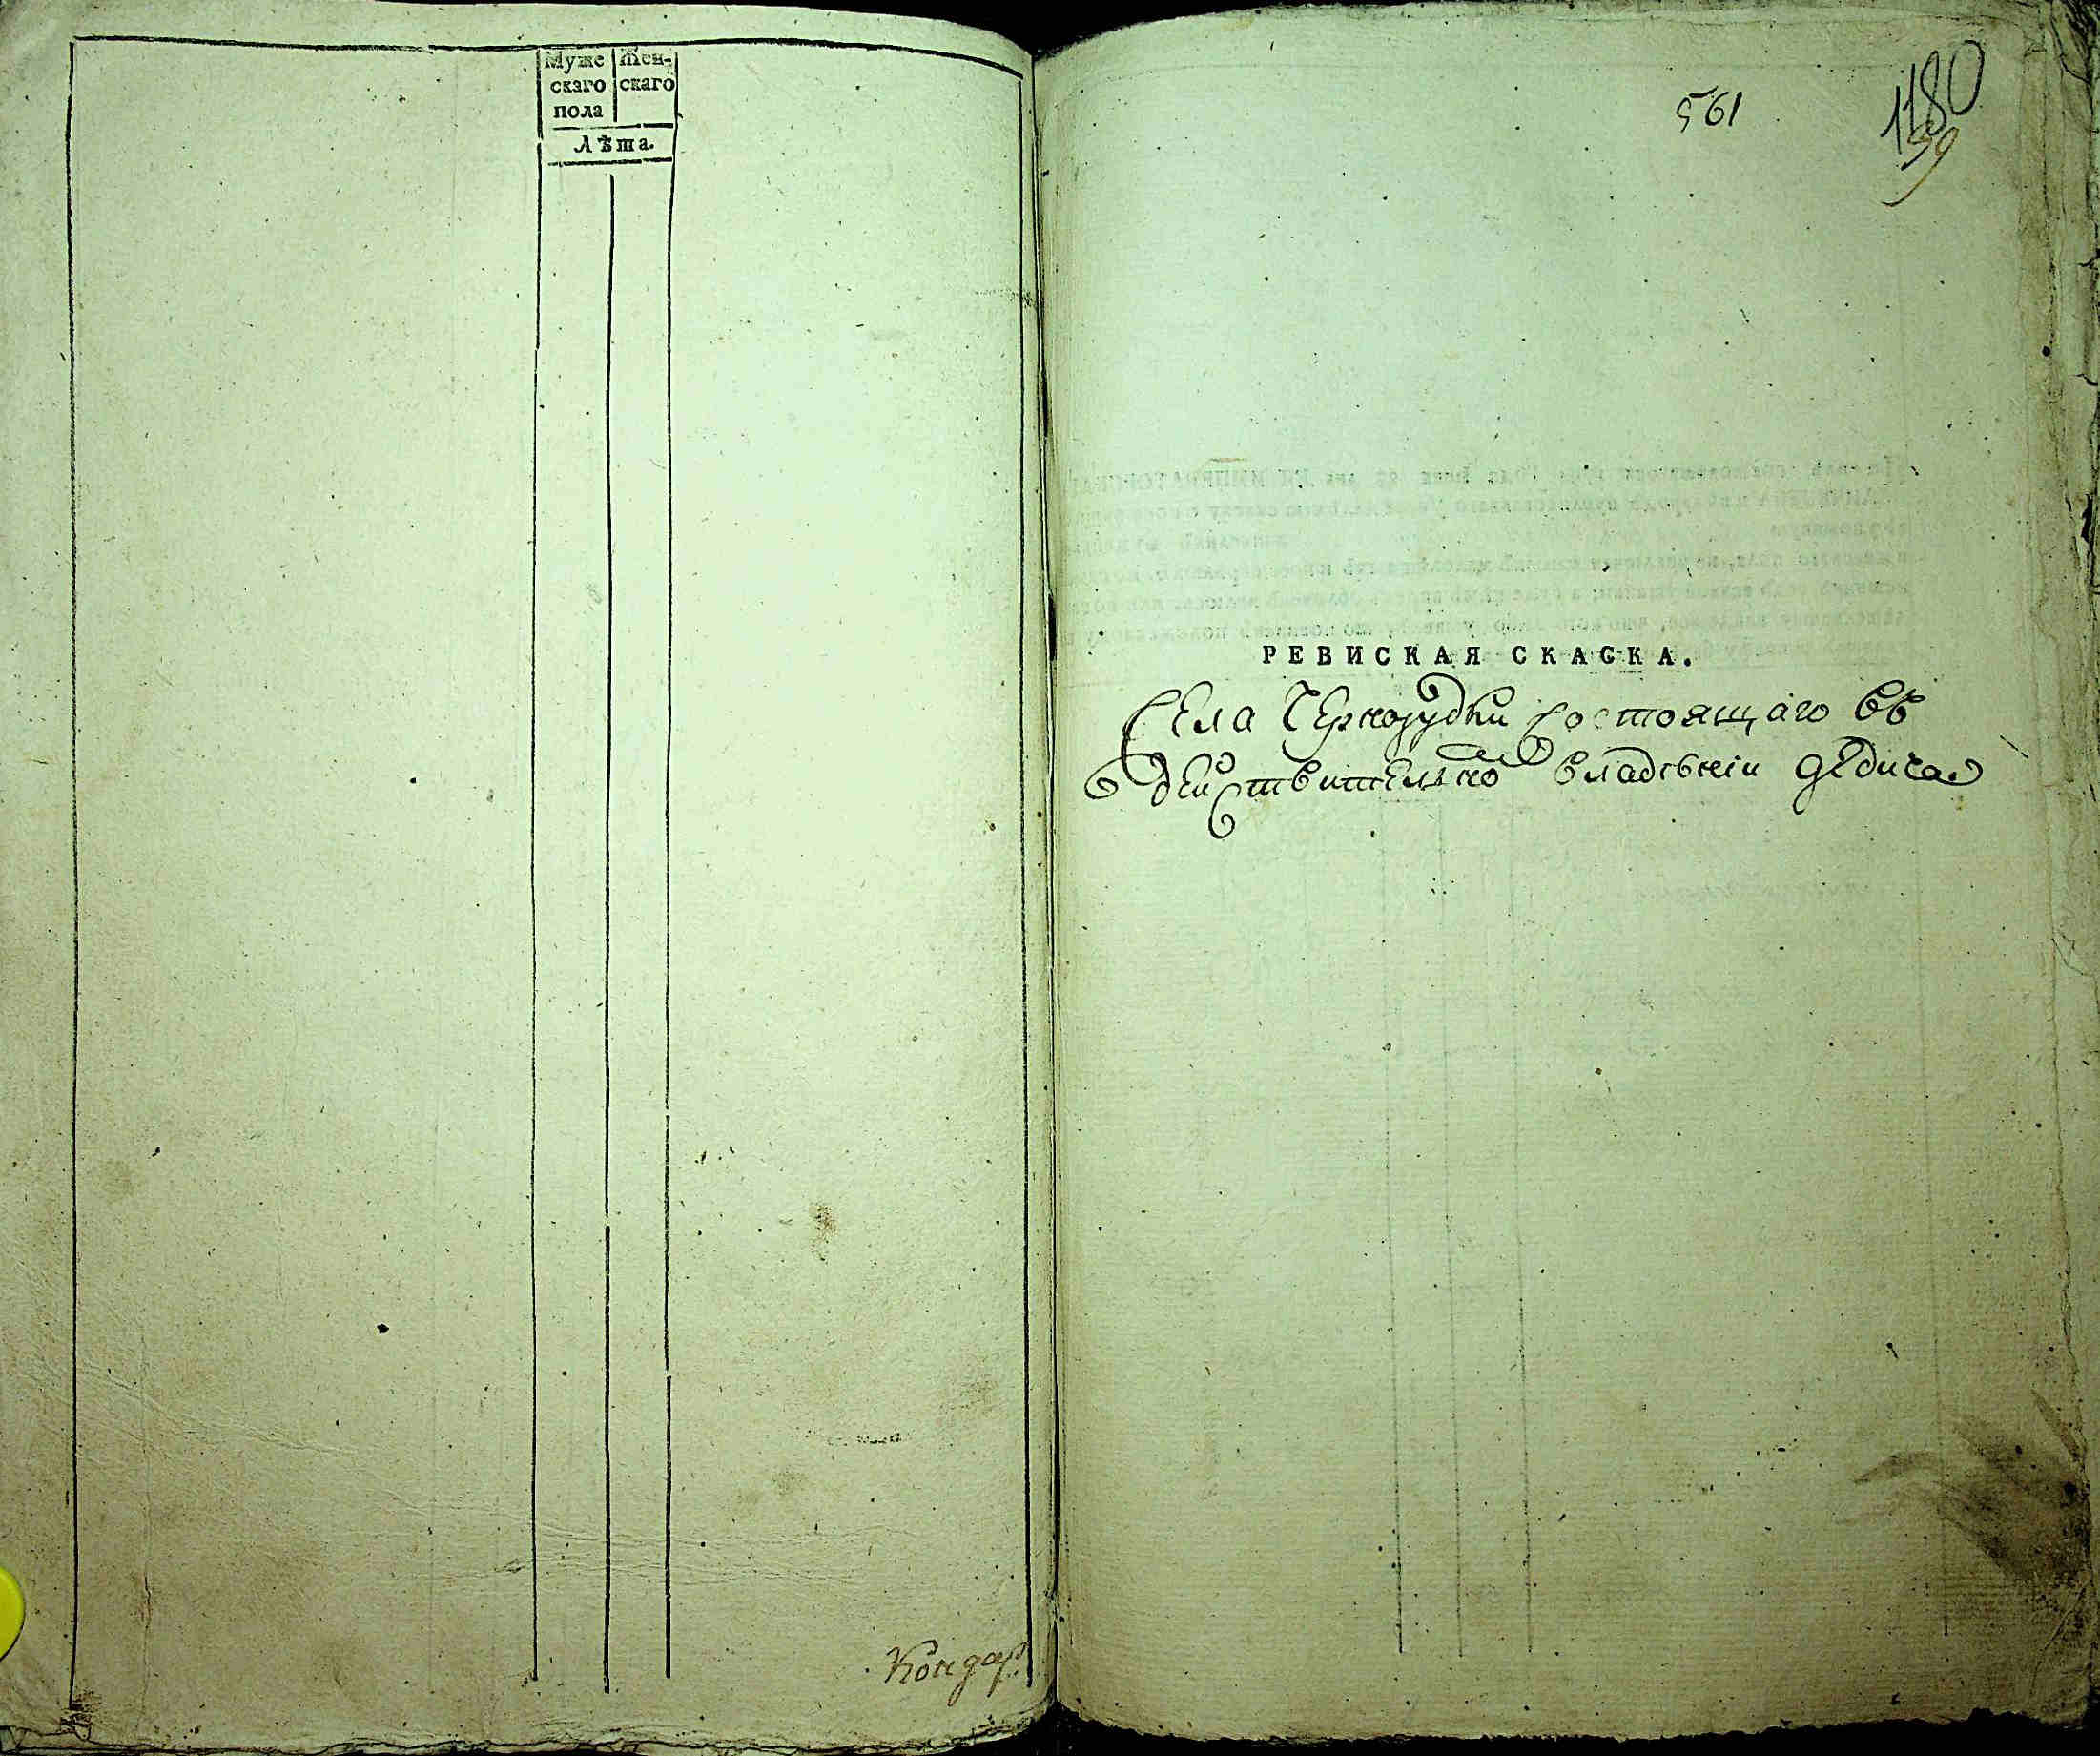 Муже Жен-
скаго скаго
пола
Лѣта.
Кондар
561
1180
59
РЕВИСКАЯ СКАСКА.
Села Чернорудки состоящаго въ
действително владѣнiи дедича